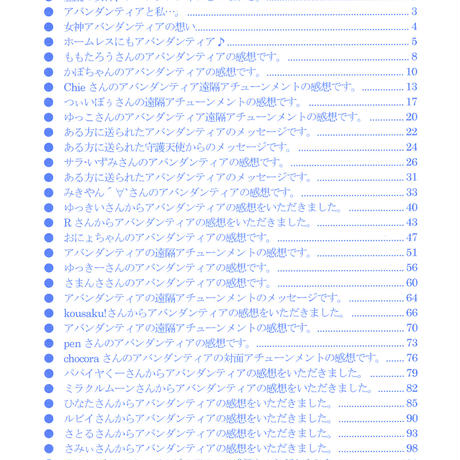 ● アバンダンティアと私…。 3
● 女神アバンダンティアの想い 4
● ホームレスにもアバンダンティア♪ 5
● ももたろうさんのアバンダンティアの感想です。 8
● かぼちゃんのアバンダンティアの感想です。 10
● Chie さんのアバンダンティア遠隔アチューンメントの感想です。 13
● つぃいぼぅさんの遠隔アチューンメントの感想です。 17
● ゆっこさんのアバンダンティア遠隔アチューンメントの感想です。 20
● ある方に送られたアバンダンティアのメッセージです。 22
● ある方に送られた守護天使からのメッセージです。 24
● サラ・いずみさんのアバンダンティアの感想です。 26
● ある方に送られたアバンダンティアのメッセージです。 31
● みきやん´∀`さんのアバンダンティアの感想です。 33
● ゆっきいさんからアバンダンティアの感想をいただきました。 40
● R さんからアバンダンティアの感想をいただきました。 43
● おにょちゃんのアバンダンティアの感想です。 47
● アバンダンティアの遠隔アチューンメントの感想です。 51
● ゆっきーさんのアバンダンティアの感想です。 56
● さまんささんのアバンダンティアの感想です。 60
● アバンダンティアの遠隔アチューンメントのメッセージです。 64
● kousaku!さんからアバンダンティアの感想をいただきました。 66
● アバンダンティアの遠隔アチューンメントの感想です。 70
● pen さんのアバンダンティアの感想です。 73
● chocora さんのアバンダンティアの対面アチューンメントの感想です。 76
● パパイヤくーさんからアバンダンティアの感想をいただきました。 79
● ミラクルムーンさんからアバンダンティアの感想をいただきました。 82
● ひなたさんからアバンダンティアの感想をいただきました。 85
● ルビイさんからアバンダンティアの感想をいただきました。 90
● さとるさんからアバンダンティアの感想をいただきました。 93
● さみぃさんからアバンダンティアの感想をいただきました。 98